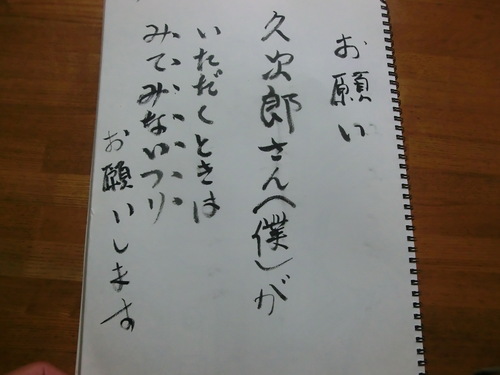 お願い
久次郎さん(僕)が
いただくときは
みてみないフリ
お願いします